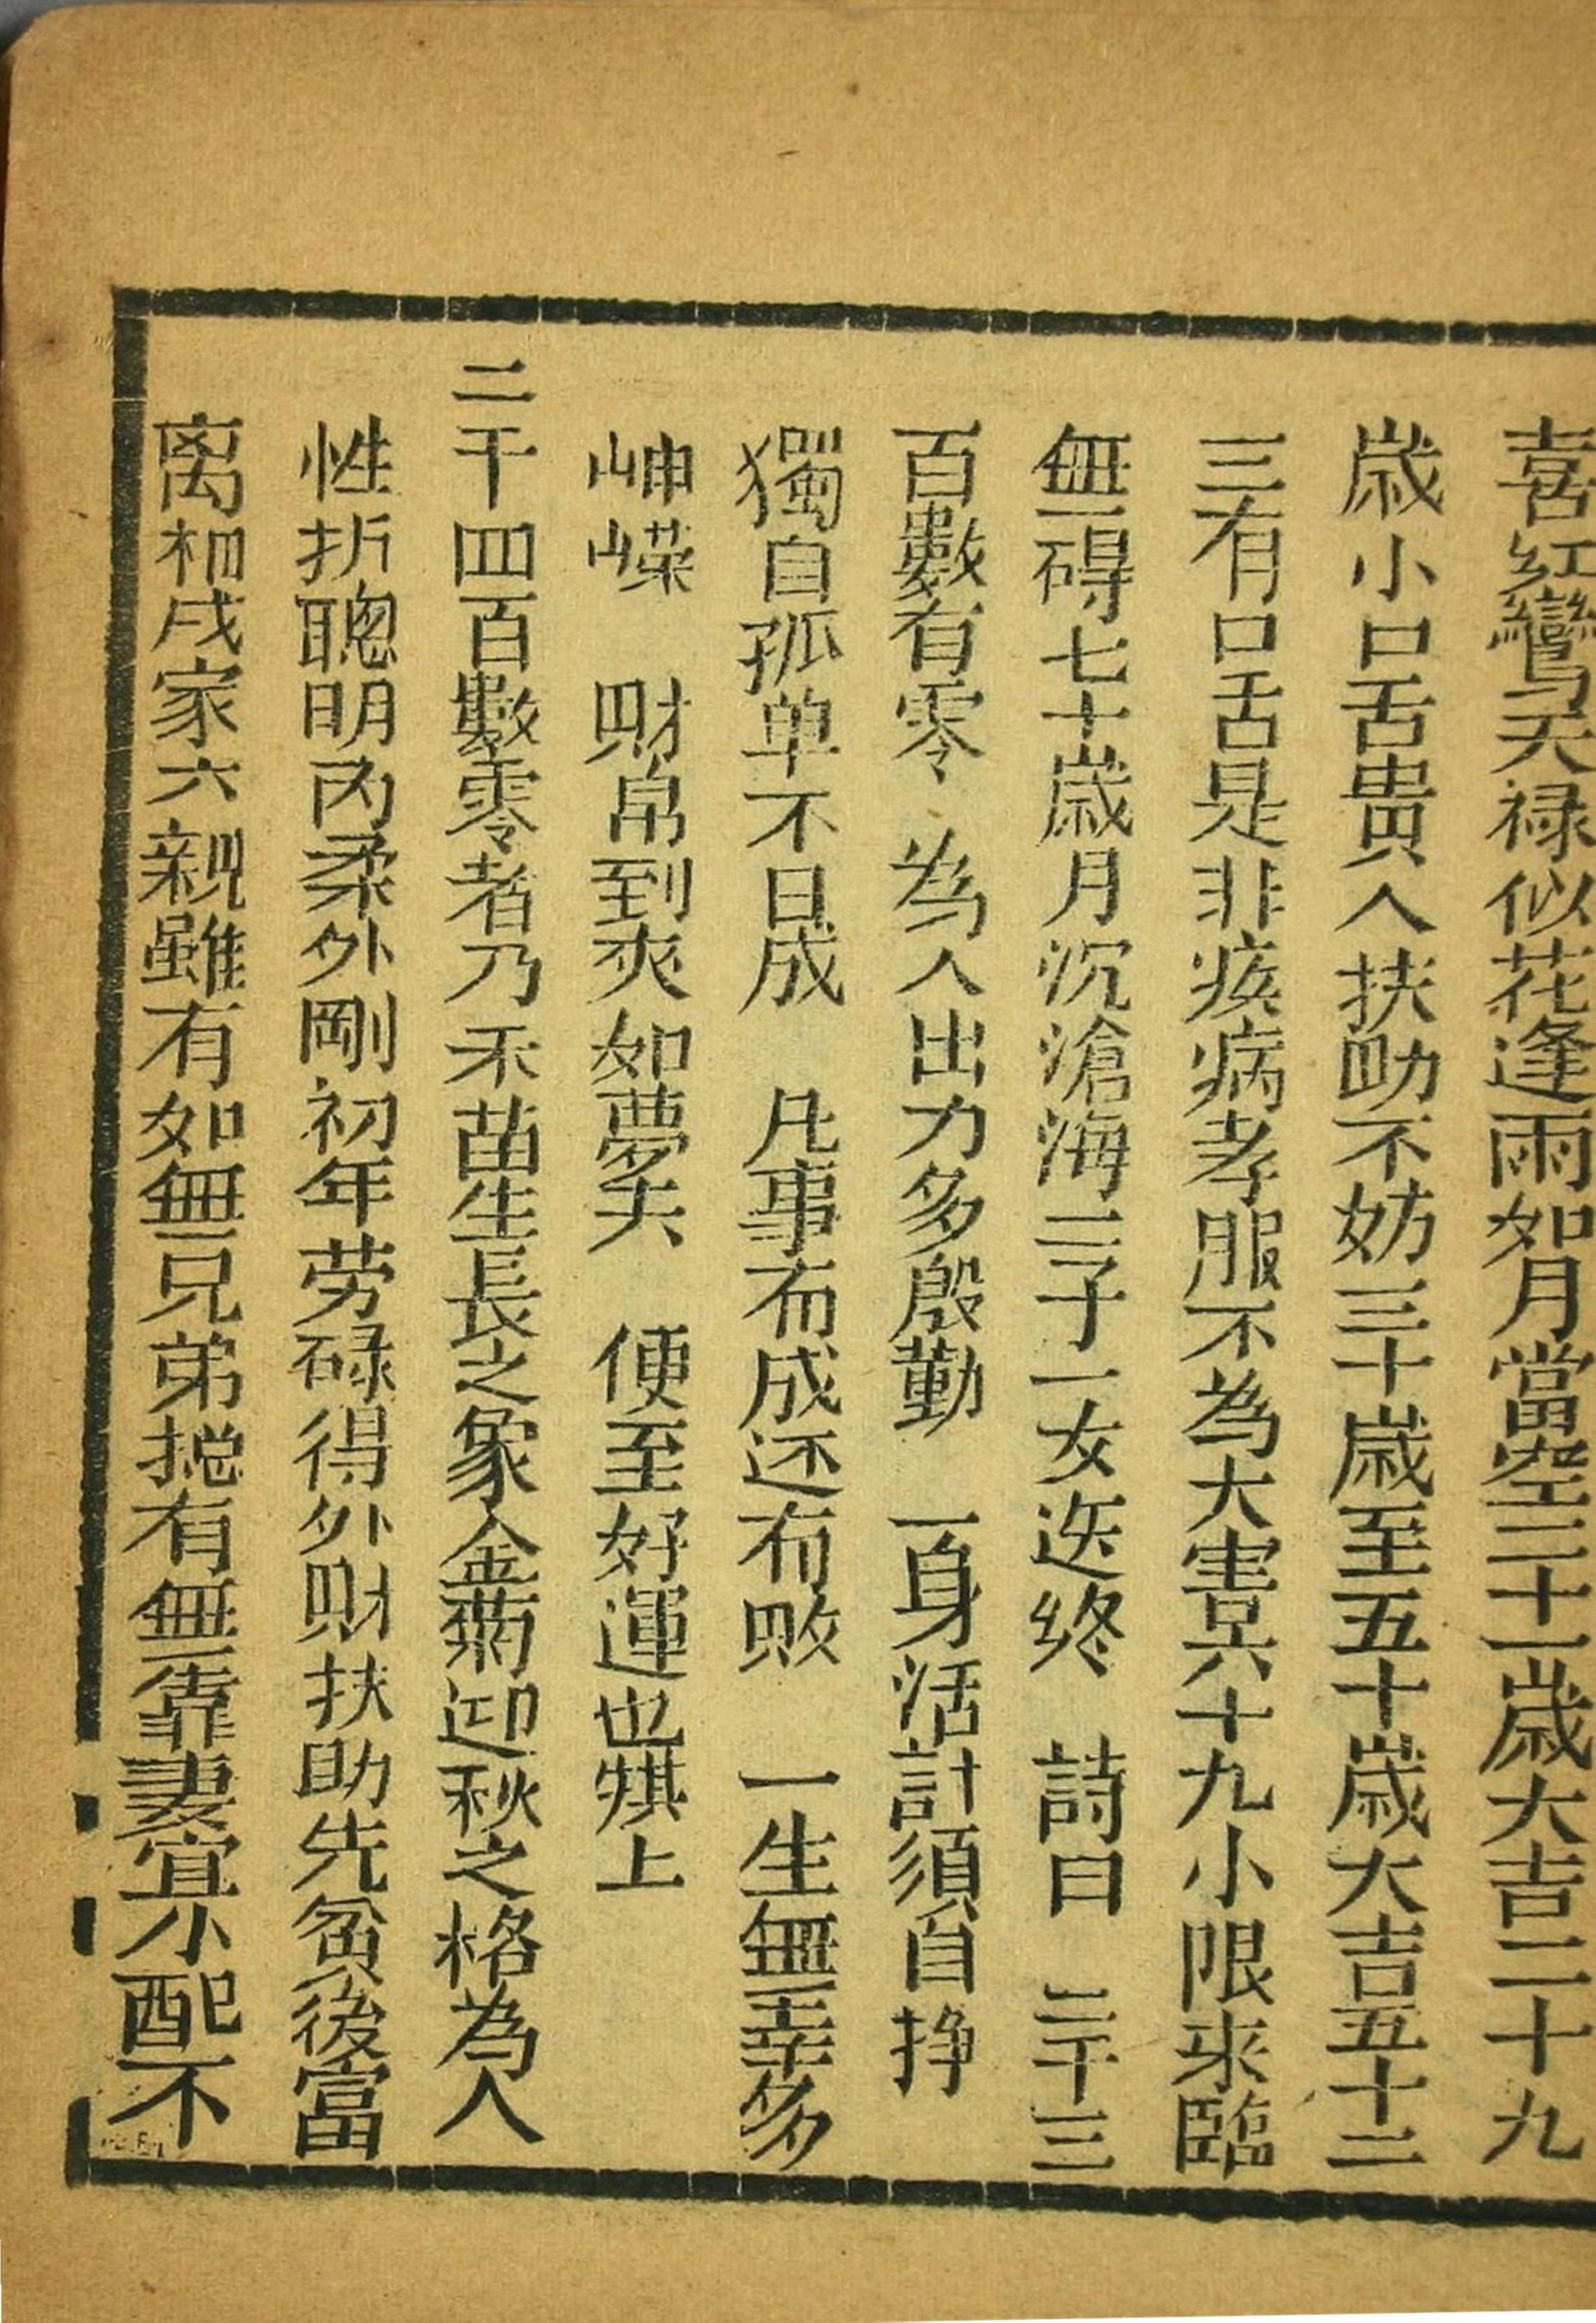 喜紅鸞天祿似花逢雨如月當空二十一歲大吉二十九
歲小口舌貴人扶助不妨三十歲至五十歲大吉五十二
三有口舌是非疾病孝服不為大害六十九小限來臨
無碍七十歲月沉滄海三子一女送終 詩曰 二千三
百數有零 為人出力多殷勤 一身活計須自掙
獨自孤单不日成 凡事布成还布敗 一生無幸多
岫嶸 財帛到爽如夢夫 便至好運也棋上
二千四百數零者乃禾苗生長之象金菊迎秋之格為人
性折聰明內柔外剛初年劳碌得外財扶助先貧後富
离祖戌家六親雖有如無兄弟捴有無靠妻宜小配不